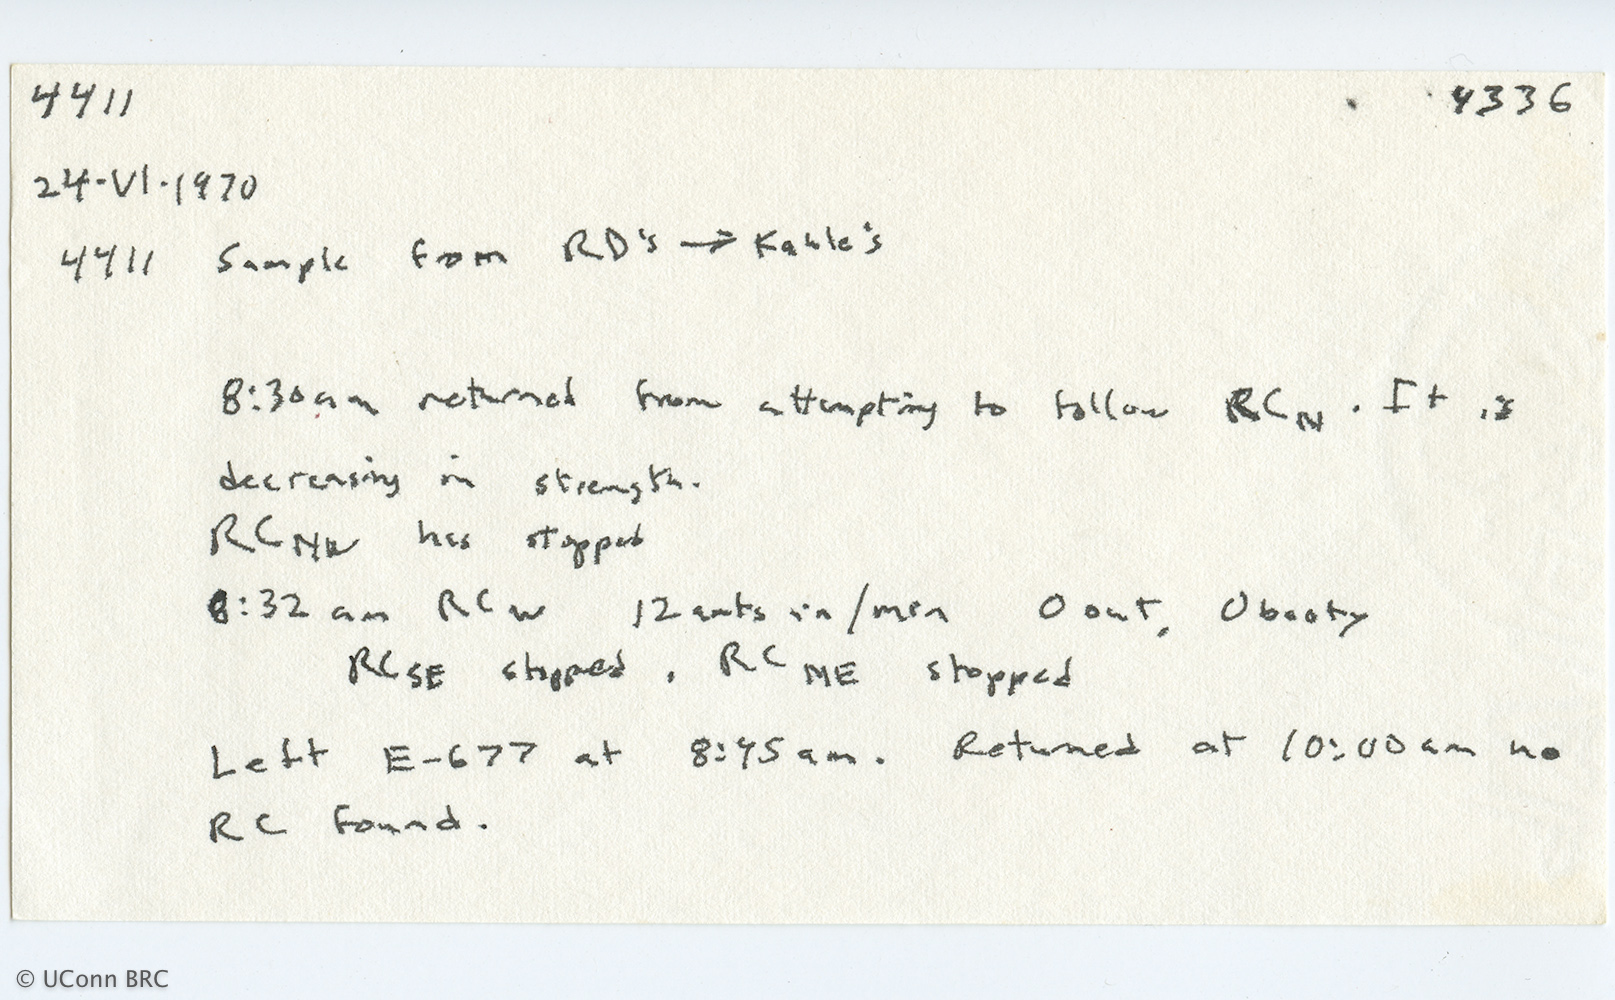 4411 4336
24-VI-1970
4411 Sample from RD's → Kahle's
8:30 am returned from attempting to follow RCN. It is
decreasing in strength.
RCNW has stopped
8:32 am RCW 12 ants in/min 0 out, 0 booty
RCSE stopped, RCNE stopped
Left E-677 at 8:45 am. Returned at 10:00 am no
RC found.
© UConn BRC